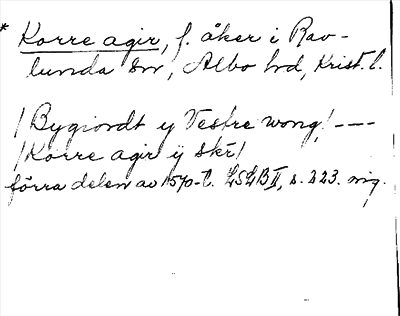 * Korre agir, f. åker i Rav-
lunda sn, Albo hd, Krist. l.
/Bygiordt y Vestre wong/ ---
/Korre agir ÿ skr/
förra delen av 1570-t. LSLB II, s. 223. mg.